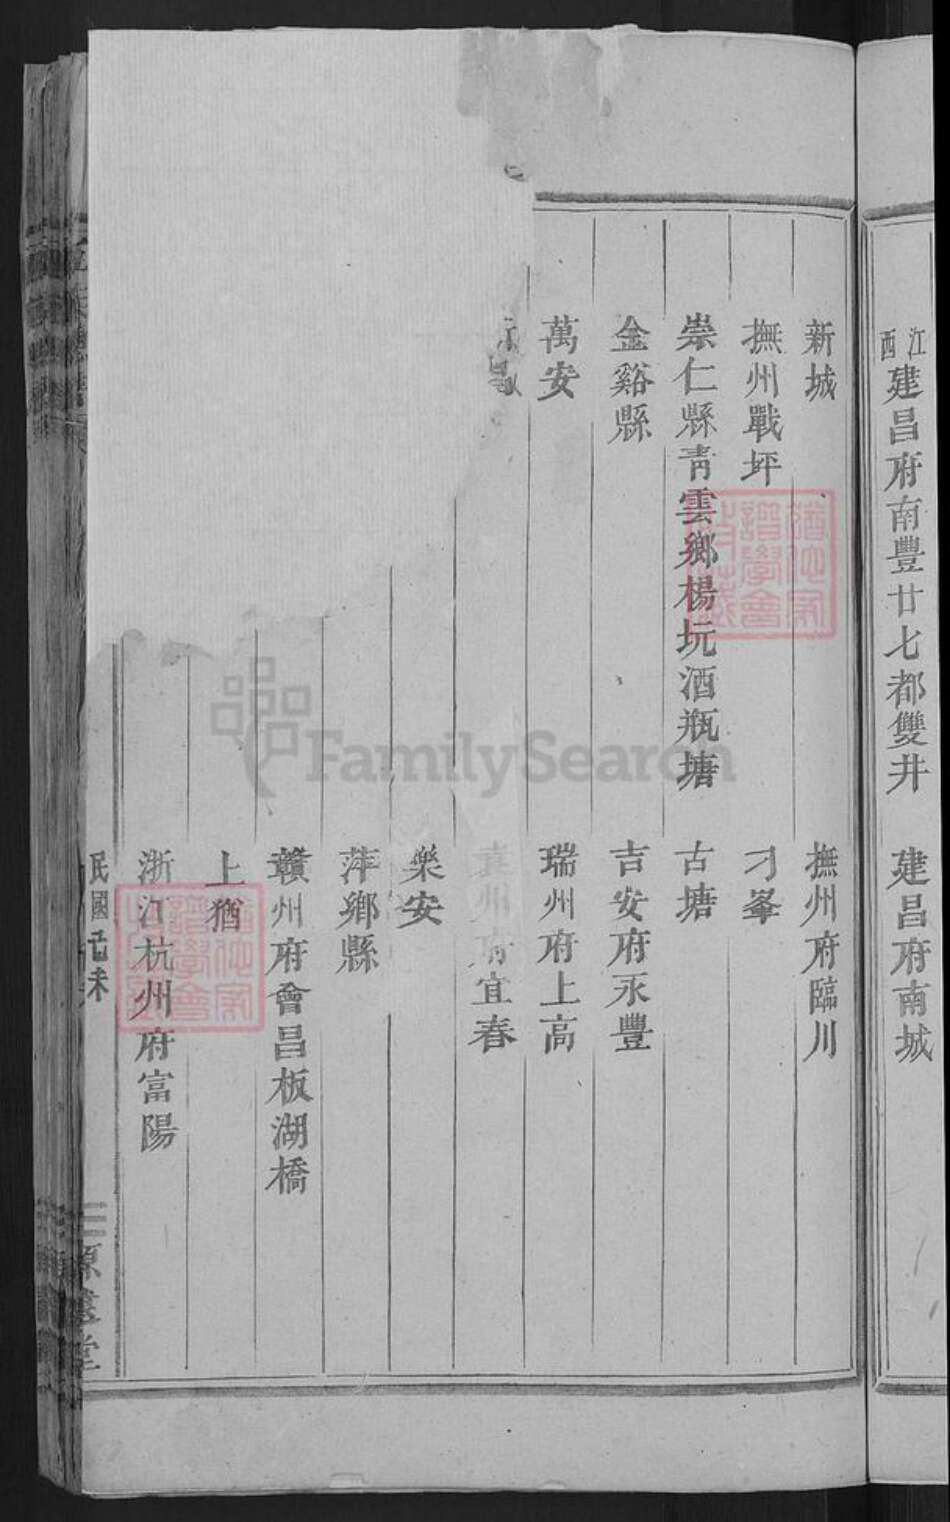 江西建昌府南豐廿七都雙井 建昌府南城
新城 撫州府臨川
撫州戰坪 刁峯
崇仁縣青雲鄉楊坃酒瓶塘 古塘
金谿縣 吉安府永豐
萬安 瑞州府上高
袁州府宜春
樂安
萍鄉縣
贛州府會昌板湖橋
上猶
浙江杭州府富陽
民國己未
源遠堂
FamilySearch